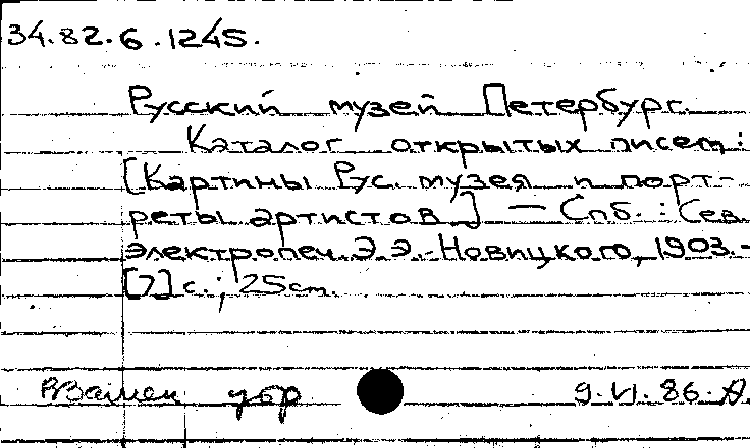 34.82.6.1245.
Русский музей Петербург.
Каталог открытых писем:
[Картины Рус. музея и порт-
реты артистов] — Спб.: Сев.
электропеч. Э.Э. Новицкого, 1903.-
[7] с.; 25 cm.
9.VI.86.